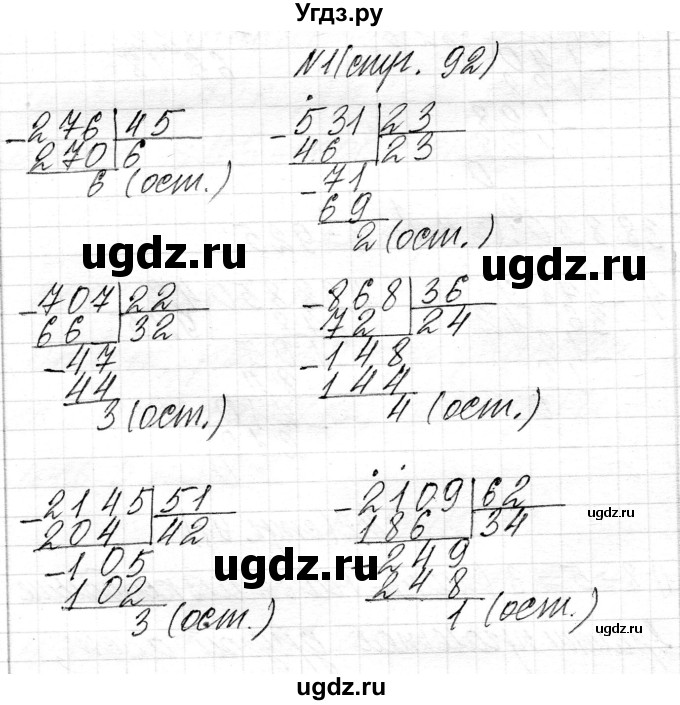 Угдз.ру
N1(стр. 92)
-276 45
270 6
6 (ост.)
-531 23
46 23
-71
69
2 (ост.)
ugdz.ru
ugdz.ru
-707 22
66 32
-47
44
3 (ост.)
-868 36
72 24
-148
144
4 (ост.)
-2145 51
204 42
-105
102
3 (ост.)
-2109 62
186 34
-249
248
1 (ост.)
ugdz.ru
ugdz.ru
ugdz.ru
ugdz.ru